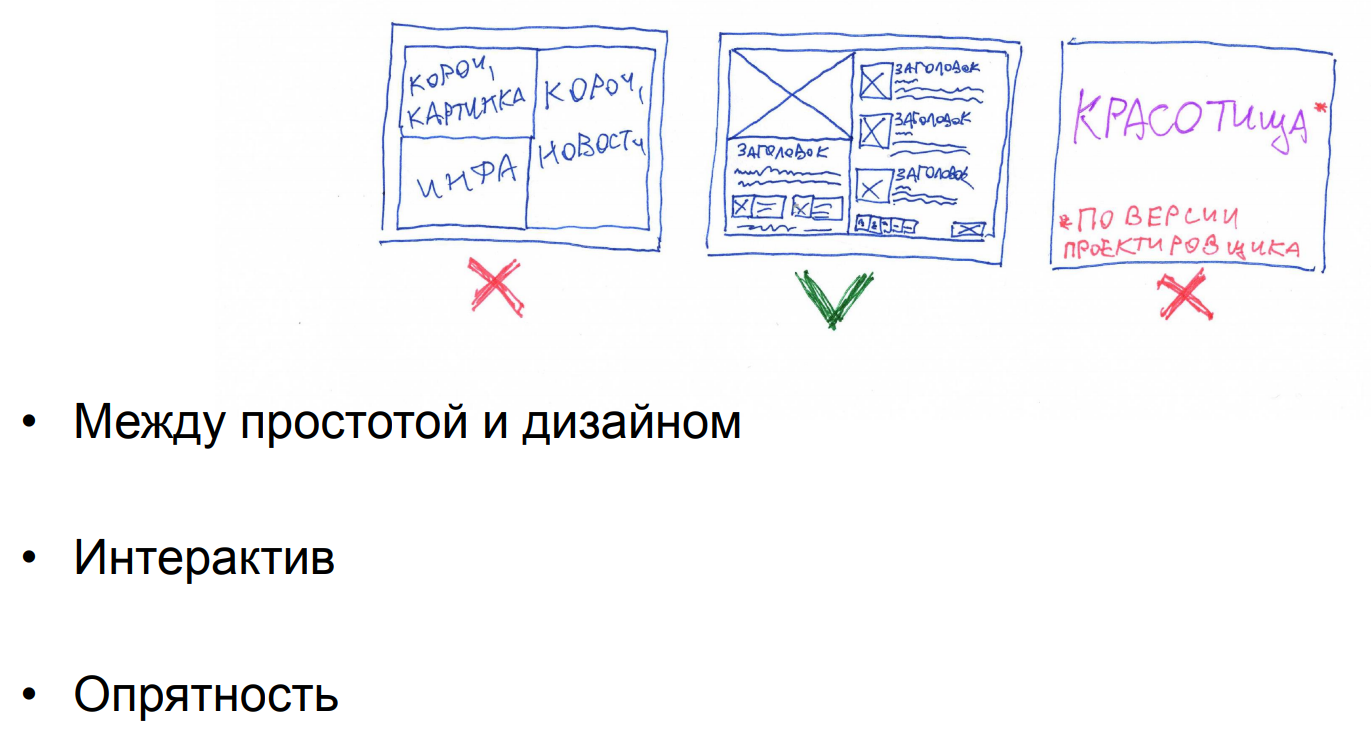 КОРОЧ,
КАРТИНКА
ИНФА
КОРОЧ,
НОВОСТИ
ЗАГОЛОВОК
ЗАГОЛОВОК
ЗАГОЛОВОК
ЗАГОЛОВОК
КРАСОТИЩА*
*ПО ВЕРСИИ
ПРОЕКТИРОВЩИКА
• Между простотой и дизайном
• Интерактив
• Опрятность